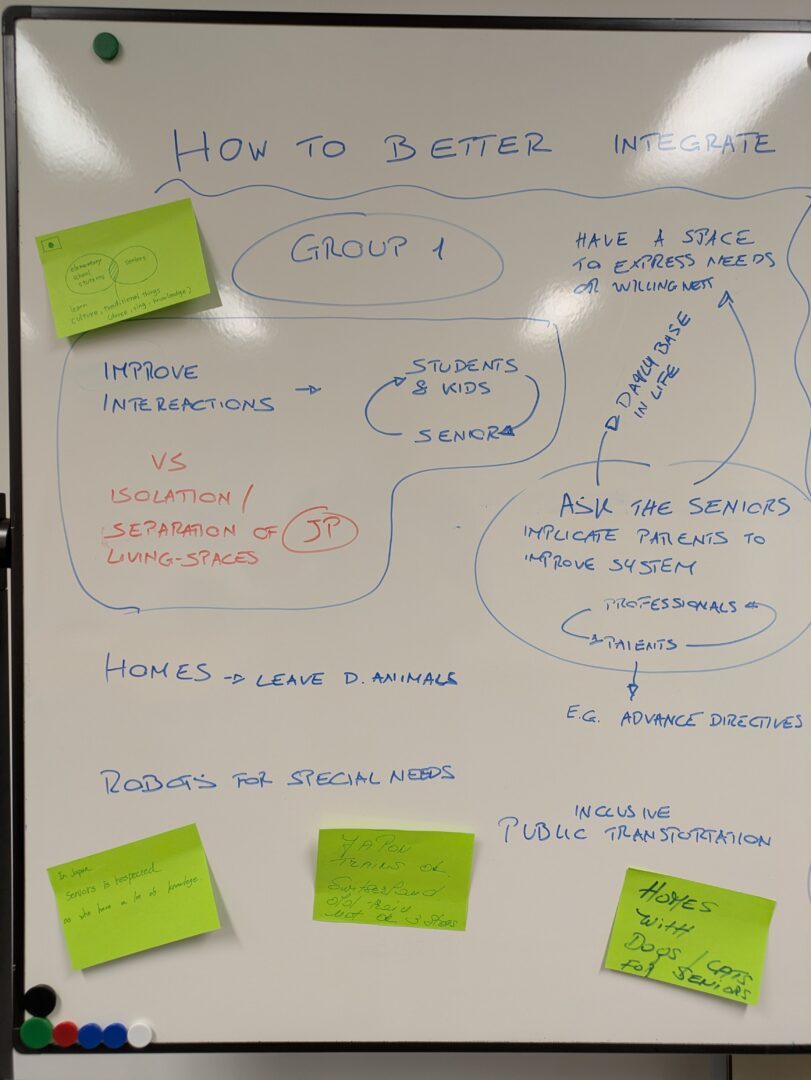 HOW TO BETTER INTEGRATE
elementary
school
students
seniors
learn
culture, traditional things
(dance, ring, knowledge)
GROUP 1
HAVE A SPACE
TO EXPRESS NEEDS
OR WILLINGNESS
DAYLY BASE
IN LIFE
IMPROVE
INTEREACTIONS
STUDENTS
& KIDS
SENIOR
VS
ISOLATION/
SEPARATION OF JP
LIVING-SPACES
ASK THE SENIORS
IMPLICATE PATIENTS TO
IMPROVE SYSTEM
PROFESSIONALS
PATIENTS
E.G. ADVANCE DIRECTIVES
HOMES → LEAVE D. ANIMALS
ROBOTS FOR SPECIAL NEEDS
INCLUSIVE
PUBLIC TRANSTORTATION
In Japan
Seniors is respected
as who have a lot of knowledge.
JAPON
TRAINS OK
Switzerland
old train
NOT OK 3 steps
HOMES
WITH
DOGS / CATS
FOR SENIORS